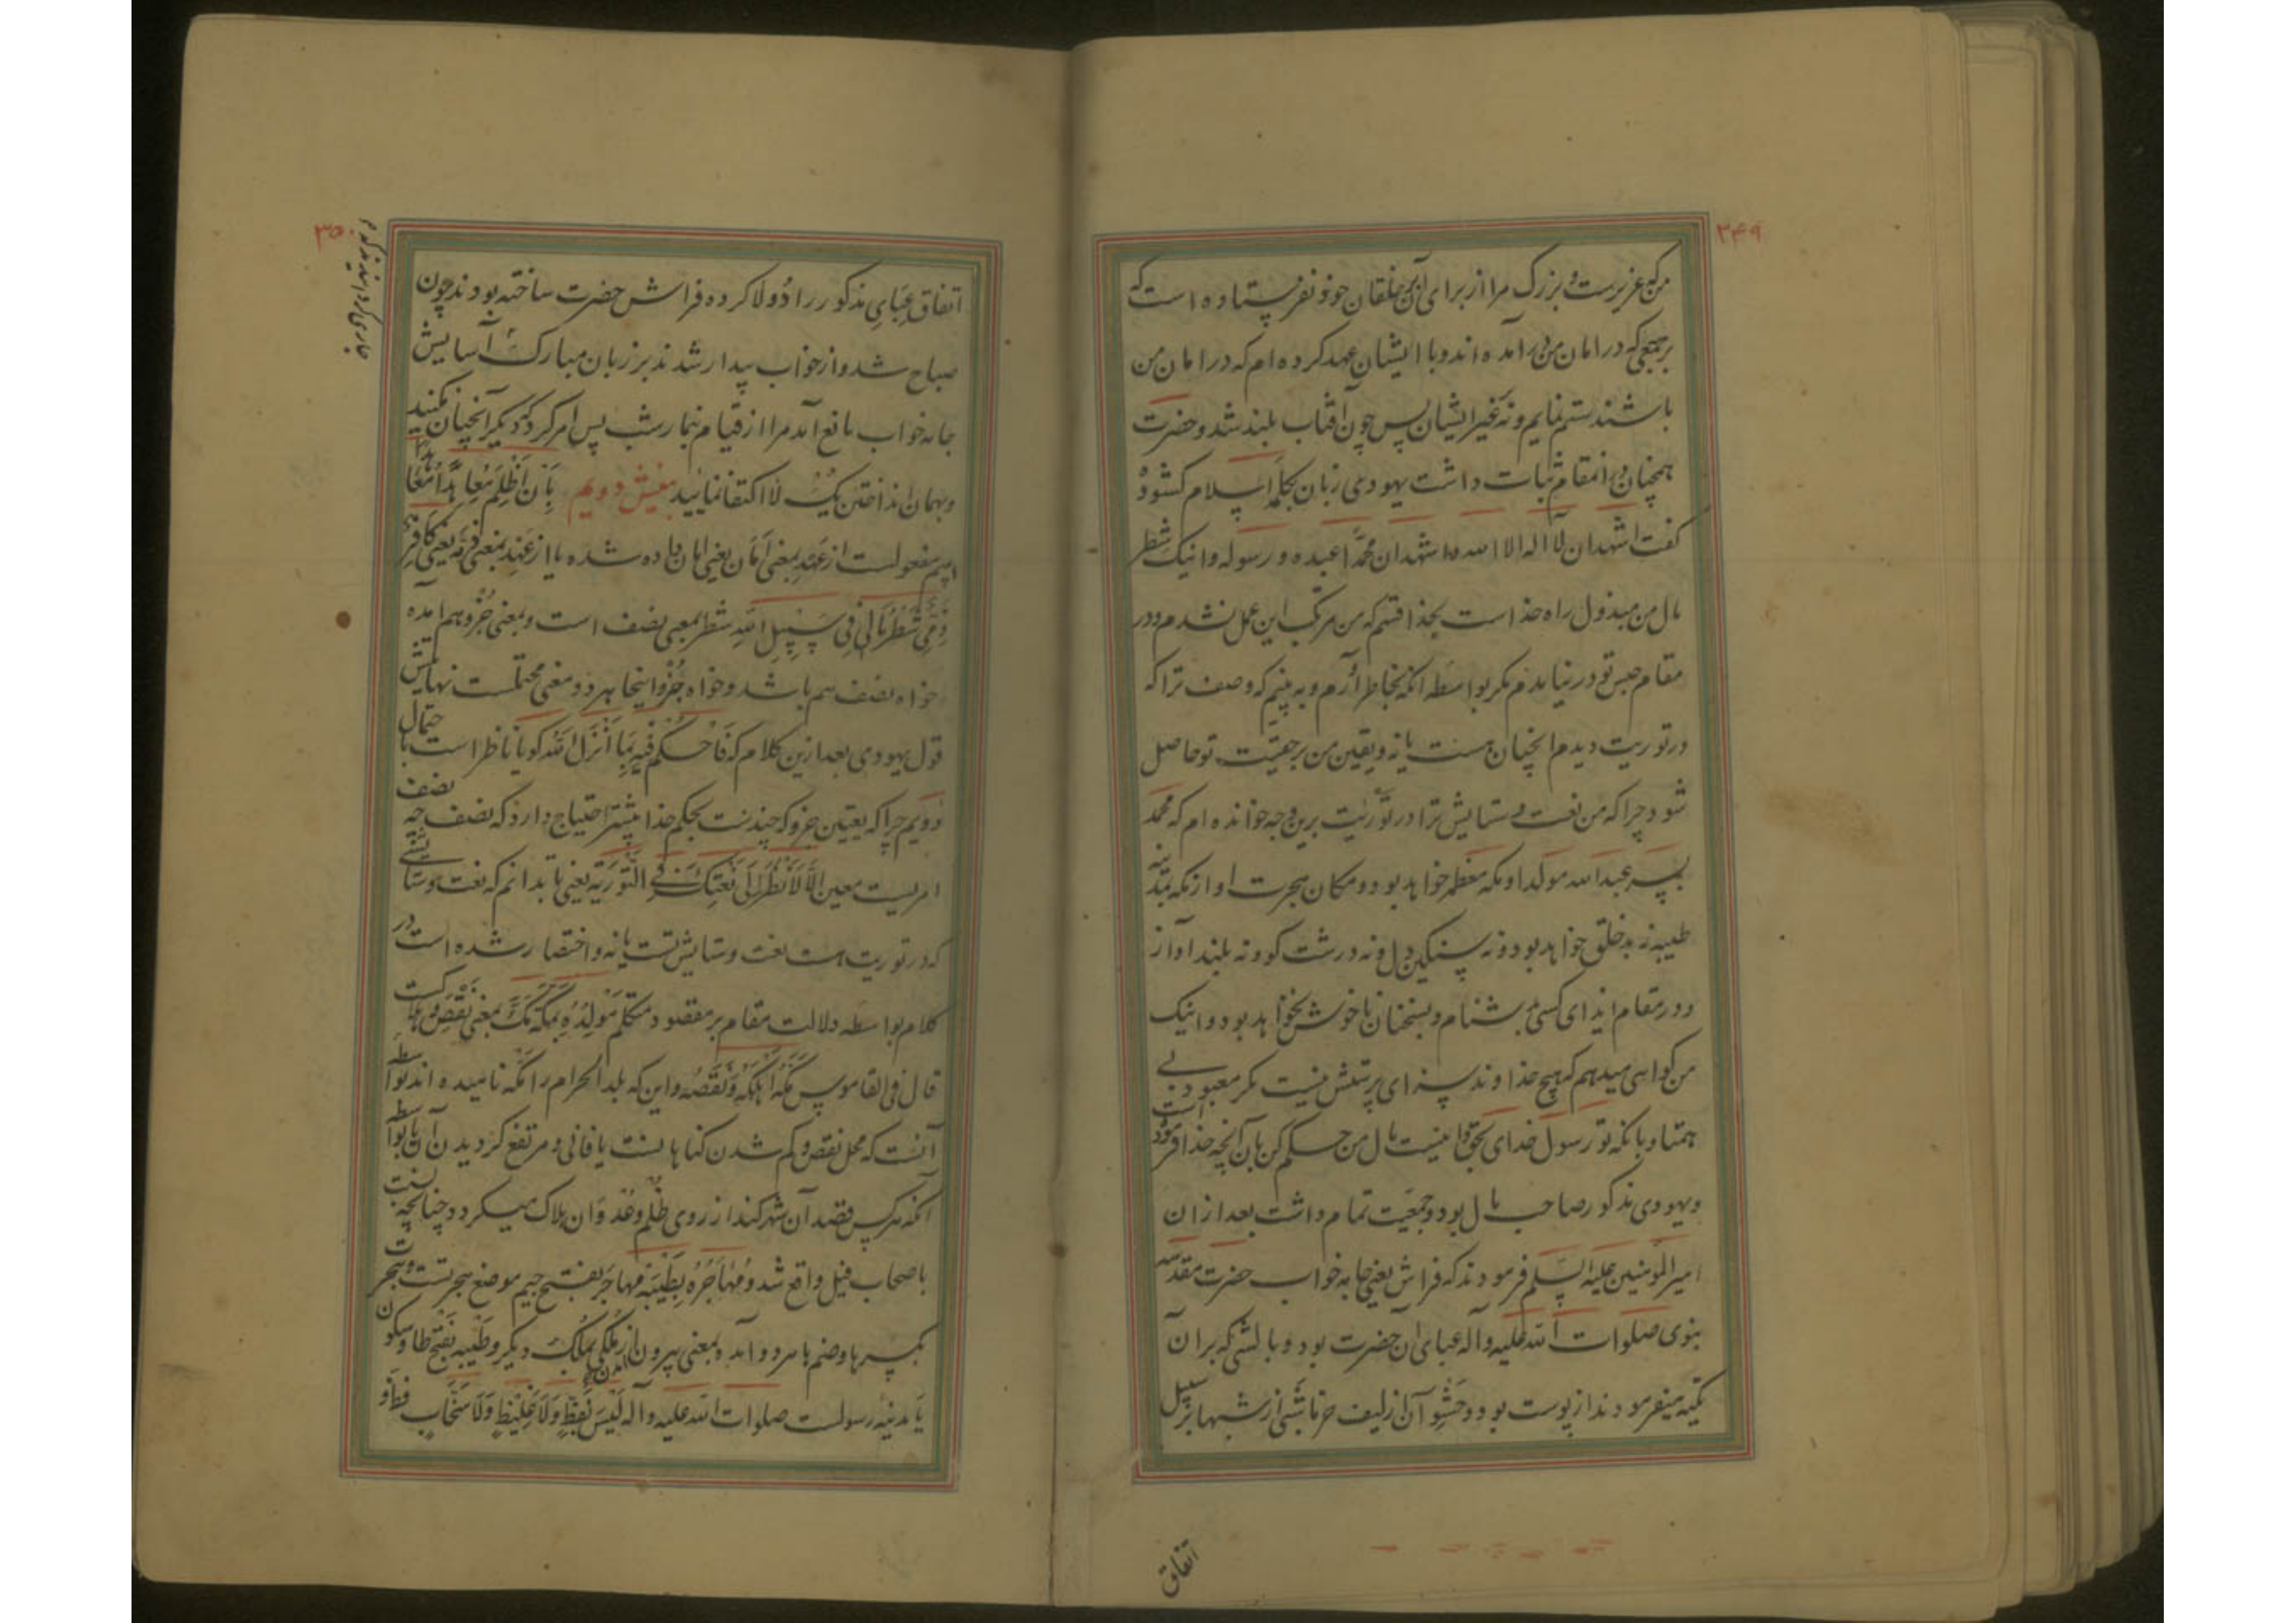 ۳۴۹
من که عزیزست و بزرگ مرا از برای آن بر خلقان خود نفرستاده است که
بر جمعی که در امان من در آمده اند و با ایشان عهد کرده ام که در امان من
باشند ستم نمایم و نه غیر ایشان پس چون آفتاب بلند شد و حضرت
همچنان در آنمقام ثبات داشت یهودی زبان بکلمه اسلام کشود و
گفت اشهد ان لا اله الا الله و اشهد ان محمّدا عبده و رسوله و اینک شطر
مال من مبذول راه خداست بخدا قسم که من مرتکب این عمل نشدم و در
مقام حبس تو در نیامدم مگر بواسطه آنکه بخاطر آرم و به بینم که وصف ترا که
در توریت دیدم آنچنان هست یا نه و یقین من بر حقیت تو حاصل
شود چرا که من نعت و ستایش ترا در توریت برین وجه خوانده ام که محمد
پسر عبدالله مولد او مکه معظمه خواهد بود و مکان هجرت او از مکه بمدینه
طیبه نه بد خلق خواهد بود و نه سنگین دل و نه درشت گو و نه بلند آواز
و در مقام ایذای کسی بدشنام و بسخنان ناخوش نخواهد بود و اینک
من گواهی میدهم که هیچ خداوند سزای پرستش نیست مگر معبود بی
همتا و بآنکه تو رسول خدای بحق و اینست مال من حکم کن بآن آنچه خدا فرموده است
و یهودی مذکور صاحب مال بود و جمعیت تمام داشت بعد از آن
امیر المومنین علیه السلم فرمودند که فراش یعنی جامه خواب حضرت مقدسه
نبوی صلوات الله علیه و آله عبای آن حضرت بود و بالشی که بر آن
تکیه میفرمودند از پوست بود و حشو آن از لیف خرما شبی از شبها بر سبیل
اتفاق
۳۵۰
اتفاق عبای مذکور را دولا کرده فراش حضرت ساخته بودند چون
صباح شد و از خواب بیدار شدند بر زبان مبارک آسایش
جامه خواب مانع آمد مرا از قیام بنماز شب پس امر کرد که دیگر آنچنان نکنید
و بهمان انداختن یک لا اکتفا نمایید بینش دویم بِأَن أَظْلِمَ مُعاهَدًا مُعَاهَد
اسم مفعولست از عهد بمعنی اَمَان یعنی امان داده شده یا از عهد بمعنی ذمّه یعنی کافر
ذمّی شَطْرُ مَالِی فِی سَبِیلِ اللهِ شطر بمعنی نصف است و بمعنی جُزو هم آمده
خواه نصف هم باشد و خواه جُزو اینجا هر دو معنی محتملست نهایتش
قول یهودی بعد ازین کلام که فَاحْکُم فِیهِ بِمَا أَنْزَلَ الله گویا ناظر است باحتمال
دویم چرا که تعیین جزو که چندست بحکم خدا بیشتر احتیاج دارد که نصف چه نصف
امریست معین اِلّا لِأَنْظُرَ اِلَی نَعْتِکَ فِی التَّوْرَیة یعنی تا بدانم که نعت و ستایشی
که در توریت هست نعت و ستایش تست یا نه و اختصار شده است در
کلام بواسطه دلالت مقام بر مقصود متکلم مَولِدُهُ بِمَکَّةَ مَکَّ بمعنی نَقَصَ و هلکت
قال فی القاموس مَکَّهُ اَهْلَکَهُ وَنَقَصَهُ و این که بلد الحرام را مکه نامیده اند بواسطه
آنست که محل نقص و کم شدن گناهانست یا فانی و مرتفع گردیدن آن یا بواسطه
آنکه هر کس قصد آن شهر کند از روی ظلم و عدوان هلاک میگردد چنانچه نسبت
باصحاب فیل واقع شد وَ مُهَاجَرُهُ بِطَیبَة مهاجَر بفتح جیم موضع هجرتست و هجرت
بکسر ها و ضم ها هر دو آمده بمعنی بیرون آمدن از مُلکی بمُلک دیگر و طَیْبَه بفتح طا و سکون
یا مدینه رسولست صلوات الله علیه و آله لَیْسَ بِفَظٍّ وَلَا غَلِیظٍ وَلَا سَخَّابٍ فظّ و